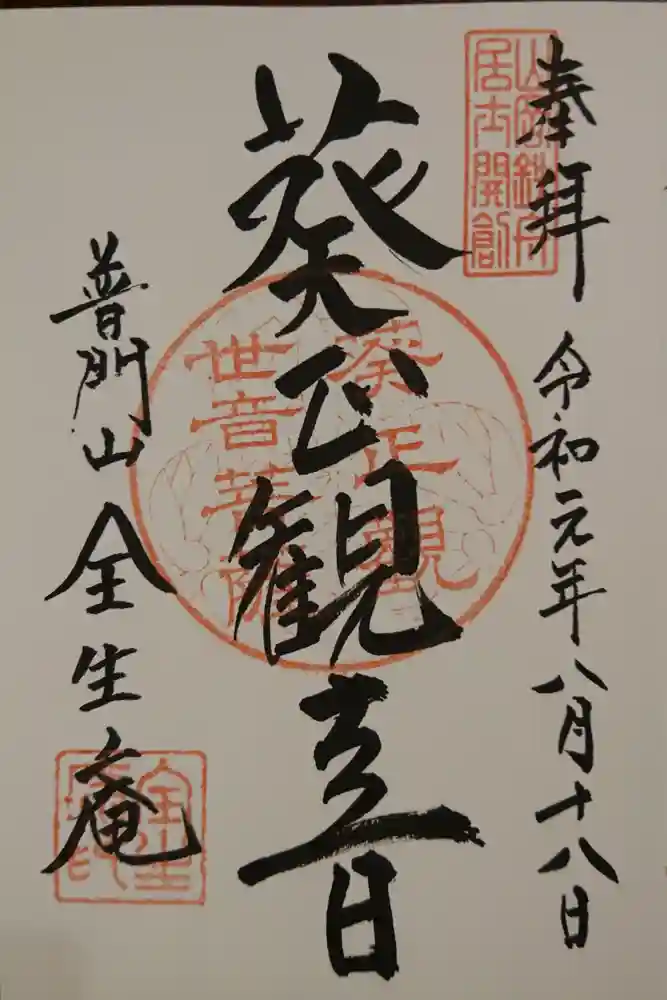 奉拝
令和元年八月十八日
山岡鉄舟
居士開創
葵正観音
葵正觀
世音菩薩
普門山全生庵
全生
庵印